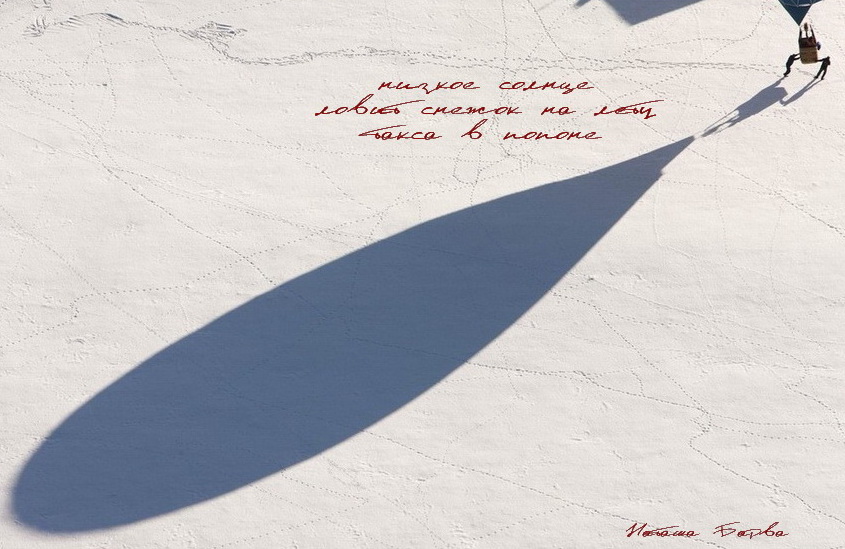 низкое солнце
ловит снежок на лету
такса в попоне
Наташа Барва